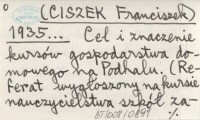 (CISZEK Franciszek)
1935... Cel i znaczenie
kursów gospodarstwa do-
mowego na Podhalu. (Re-
ferat wygłoszony na kursie
nauczycielstwa szkół za-
BJ/008/0891